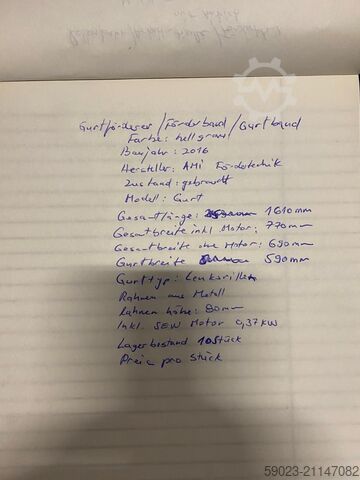 Gurtförderer / Förderband / Gurtband
Farbe: hellgrau
Baujahr: 2016
Hersteller: AMI Fördertechnik
Zustand: gebraucht
Modell: Gurt
Gesamtlänge: 1610mm
Gesamtbreite inkl Motor: 770mm
Gesamtbreite ohne Motor: 690mm
Gurtbreite 590mm
Gurttyp: Lenksrille
Rahmen aus Metall
Rahmen höhe: 90mm
Inkl. SEW Motor 0,37 KW
Lagerbestand 10 Stück
Preis pro Stück
59023-21147082